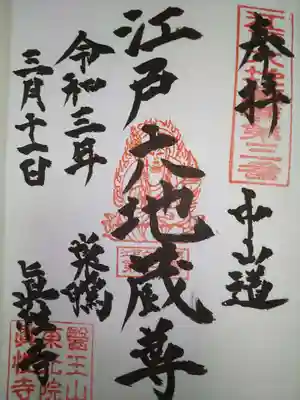 奉拝
中山道
江戸六地蔵尊
巣鴨
眞性寺
令和三年
三月十一日
醫王山
東光院
眞性寺